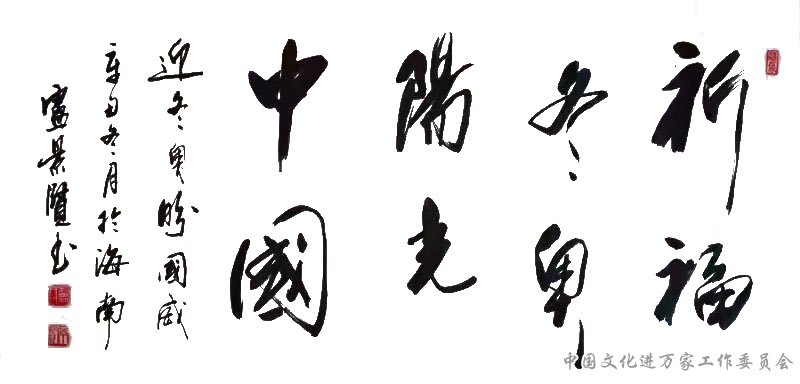 祈福
冬奥
陽光
中國
迎冬奥盼國威
辛丑冬月於海南
景賢书
中国文化进万家工作委员会